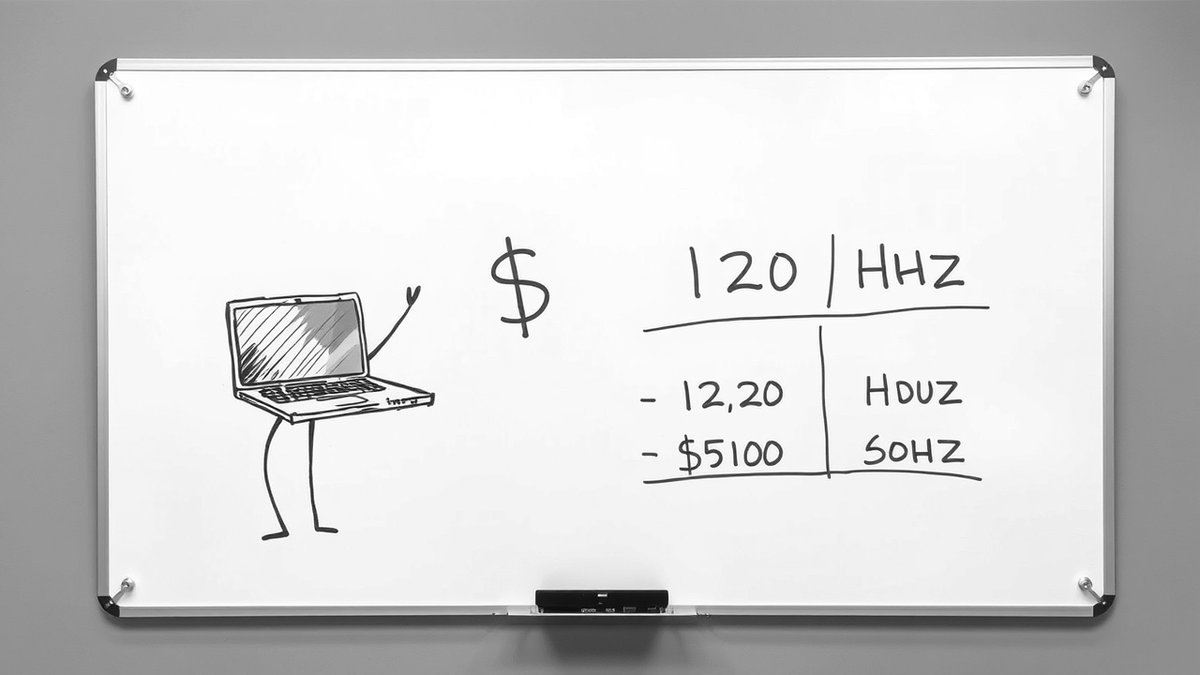 $
120 | HHZ
- 12,20 | HDUZ
- $5100 | SOHZ